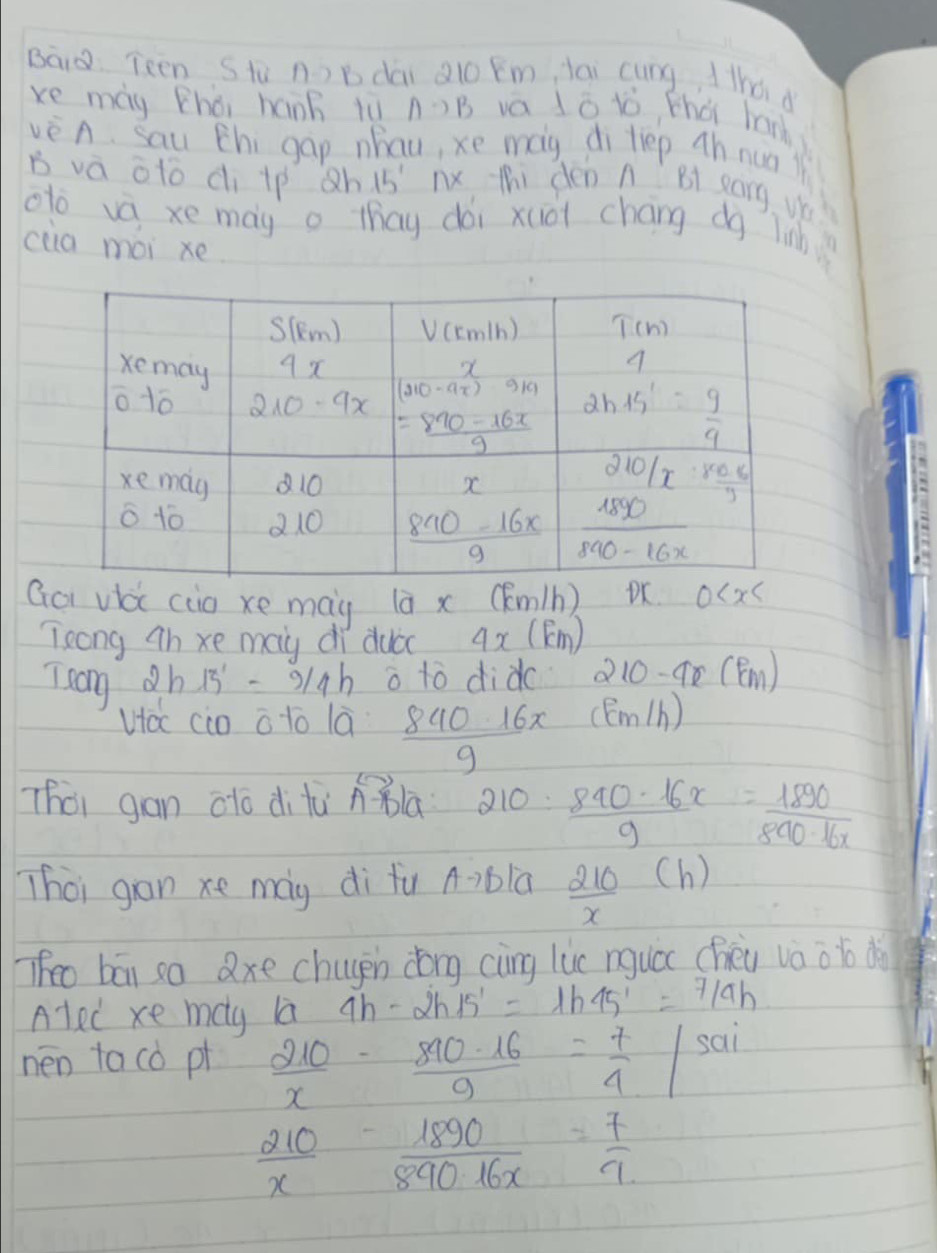 Bài2. Trên S từ A→B dài 210 km, tại cùng 1 thời đ
xe máy khởi hành từ A→B và 1 ô tô khởi hành
về A. Sau khi gặp nhau, xe máy đi tiếp 4h nữa th
B và ôtô đi tp 2h15' nx thì đến A. Bt rằng
ôtô và xe máy o thay đổi xuốt chặng đg Tính
của mỗi xe
S(km) V(km/h) T(h)
xe máy 4x x 4
ô tô 210-4x (210-4x) 9/4 2h15' = 9/4
= 840-16x/9
xe máy 210 x 210/x
ô tô 210 840-16x/9 1890/840-16x
Gọi vtốc của xe máy là x (km/h) ĐK. 0<x<
Trong 4h xe máy đi được 4x (km)
Trong 2h15' = 9/4h ô tô đi đc: 210-4x (km)
Vtốc của ô tô là: 840-16x/9 (km/h)
Thời gian ôtô đi từ A→B là: 210 : 840-16x/9 = 1890/840-16x
Thời gian xe máy đi từ A→B là 210/x (h)
Theo bài ra 2xe chuyển động cùng lúc ngược chiều và ô tô đến
A trc xe máy là 4h - 2h15' = 1h45' = 7/4h
nên ta có pt 210/x - 840-16/9 = 7/4 | sai
210/x - 1890/840-16x = 7/4.